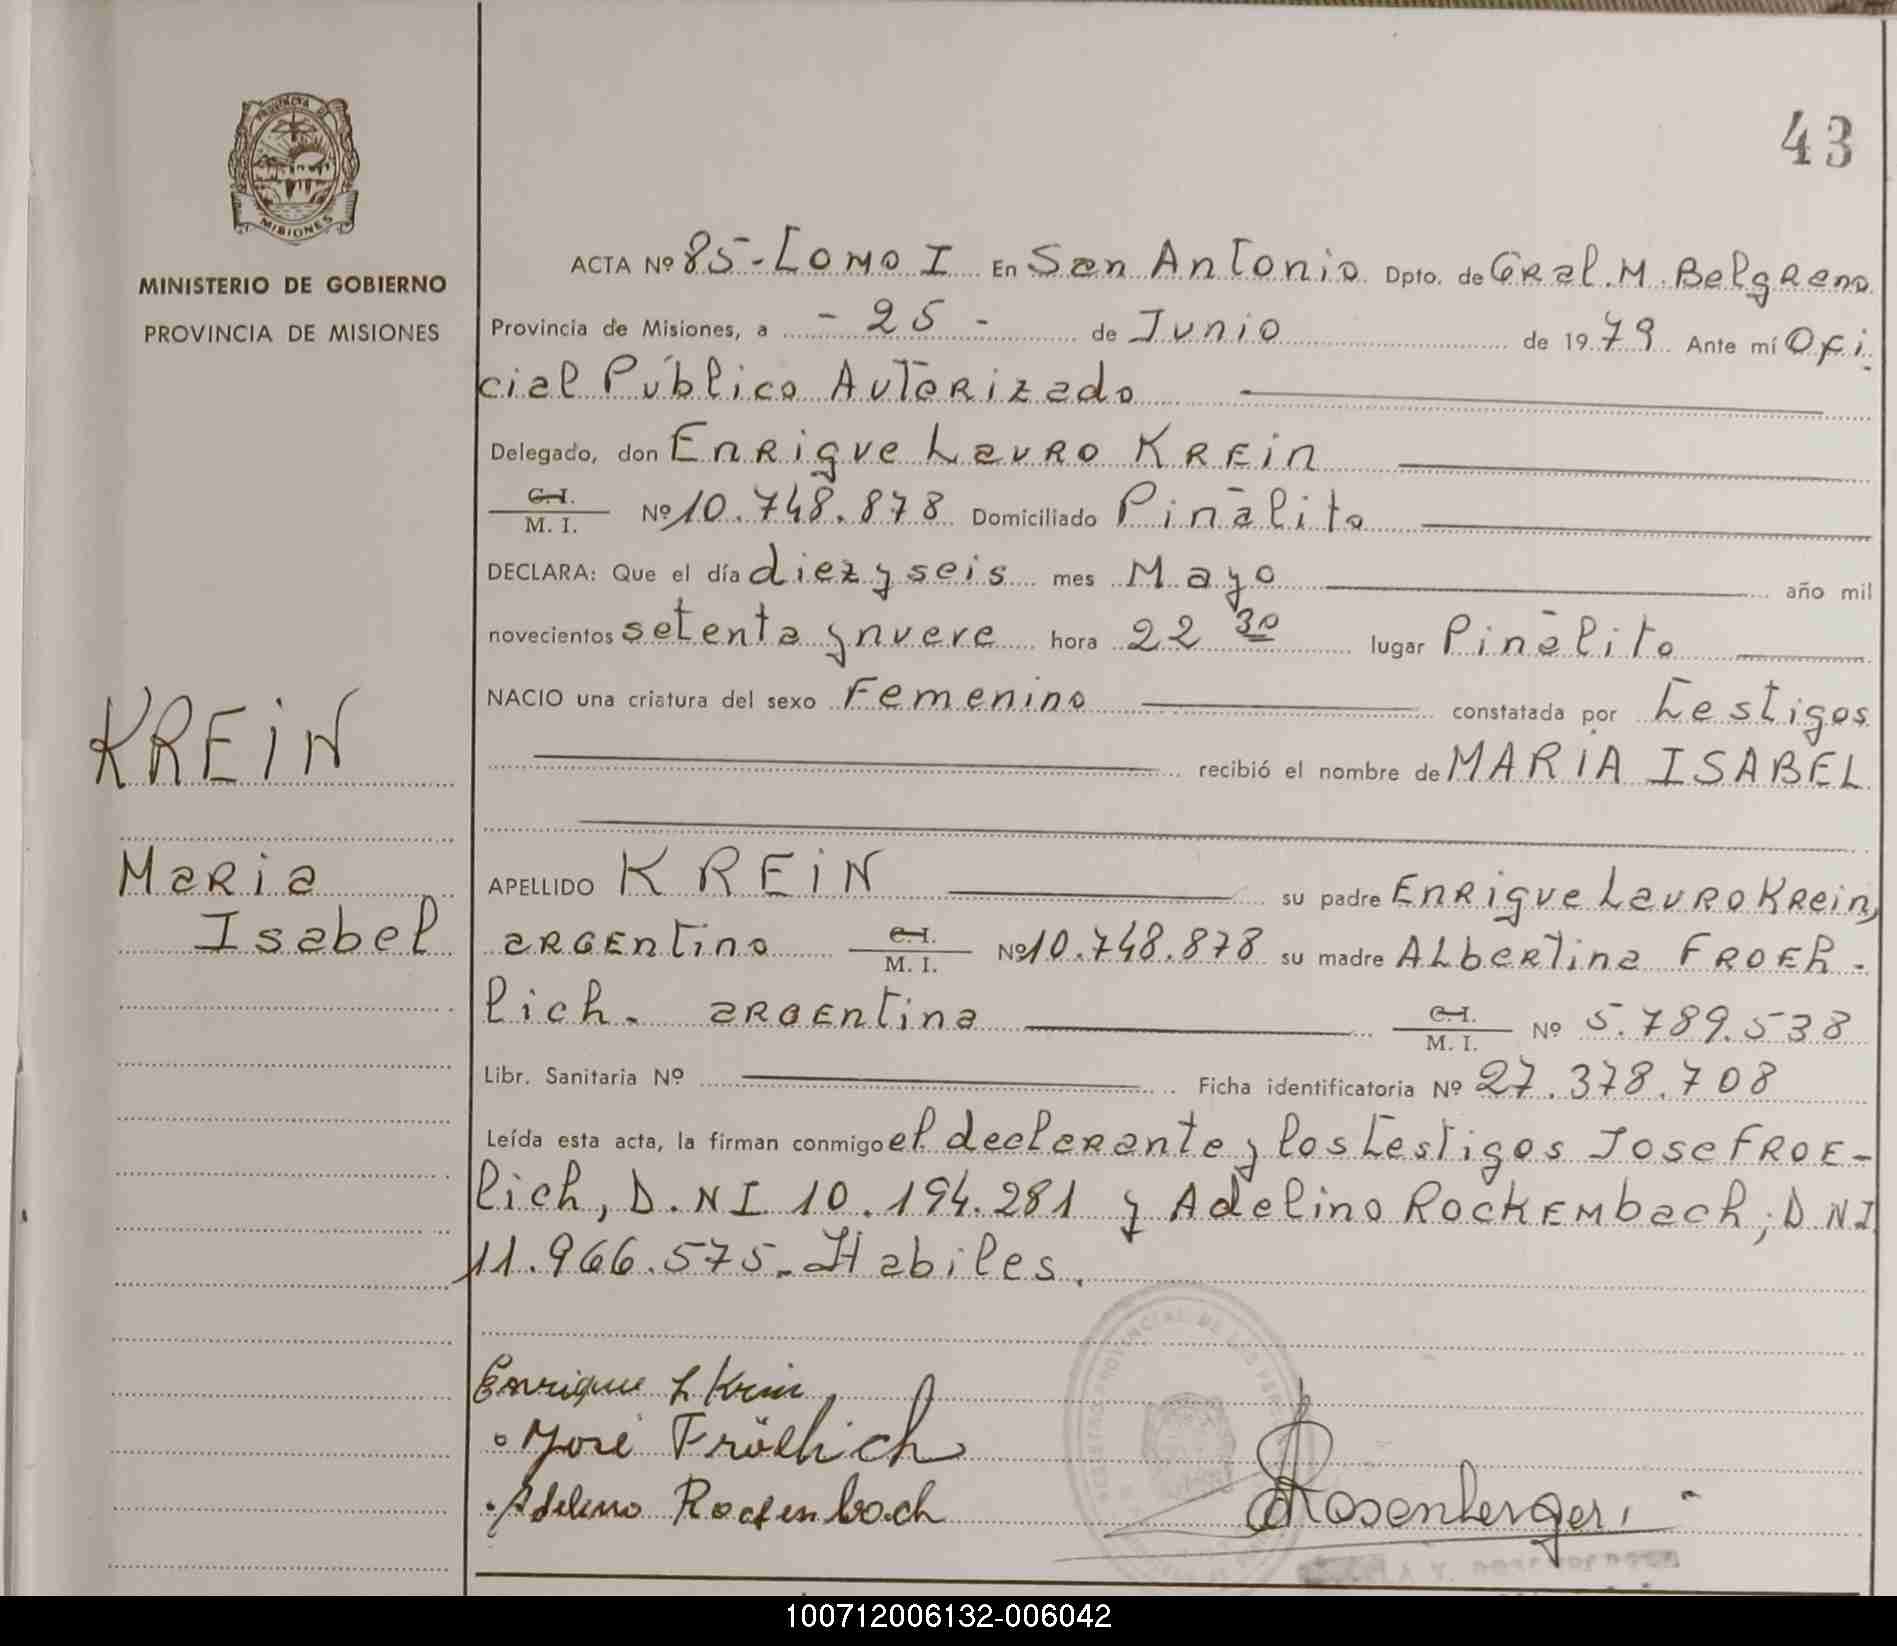 43
PROVINCIA DE
MISIONES
MINISTERIO DE GOBIERNO
PROVINCIA DE MISIONES
KREIN
Maria
Isabel
ACTA Nº 85-Tomo I En San Antonio Dpto. de Gral. M. Belgrano
Provincia de Misiones, a - 25 - de Junio de 1979 Ante mí Ofi-
cial Público Autorizado
Delegado, don Enrique Lauro Krein
C. I.
M. I. Nº 10.748.878 Domiciliado Piñalito
DECLARA: Que el día diez y seis mes Mayo año mil
novecientos setenta y nueve hora 22 30 lugar Piñalito
NACIO una criatura del sexo Femenino constatada por Testigos
recibió el nombre de MARIA ISABEL
APELLIDO KREIN su padre Enrique Lauro Krein,
argentino C. I.
M. I. Nº 10.748.878 su madre Albertina Froeh-
lich. argentina C. I.
M. I. Nº 5.789.538
Libr. Sanitaria Nº Ficha identificatoria Nº 27.378.708
Leída esta acta, la firman conmigo el declarante y los Testigos Jose Froe-
lich, D.NI 10.194.281 y Adelino Rockembach, D NI
11.966.575. Habiles.
Enrique L Krein
José Fröhlich
Adelino Rockenbach
Rosenberger
100712006132-006042